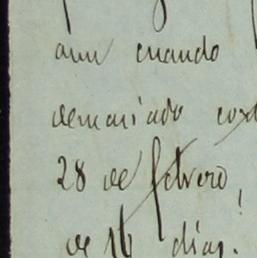 aun cuando
demasiado
28 de febrero,
de 16 dias.